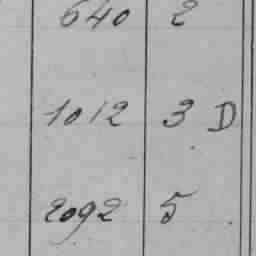 640 2
1012 3 D
2092 5